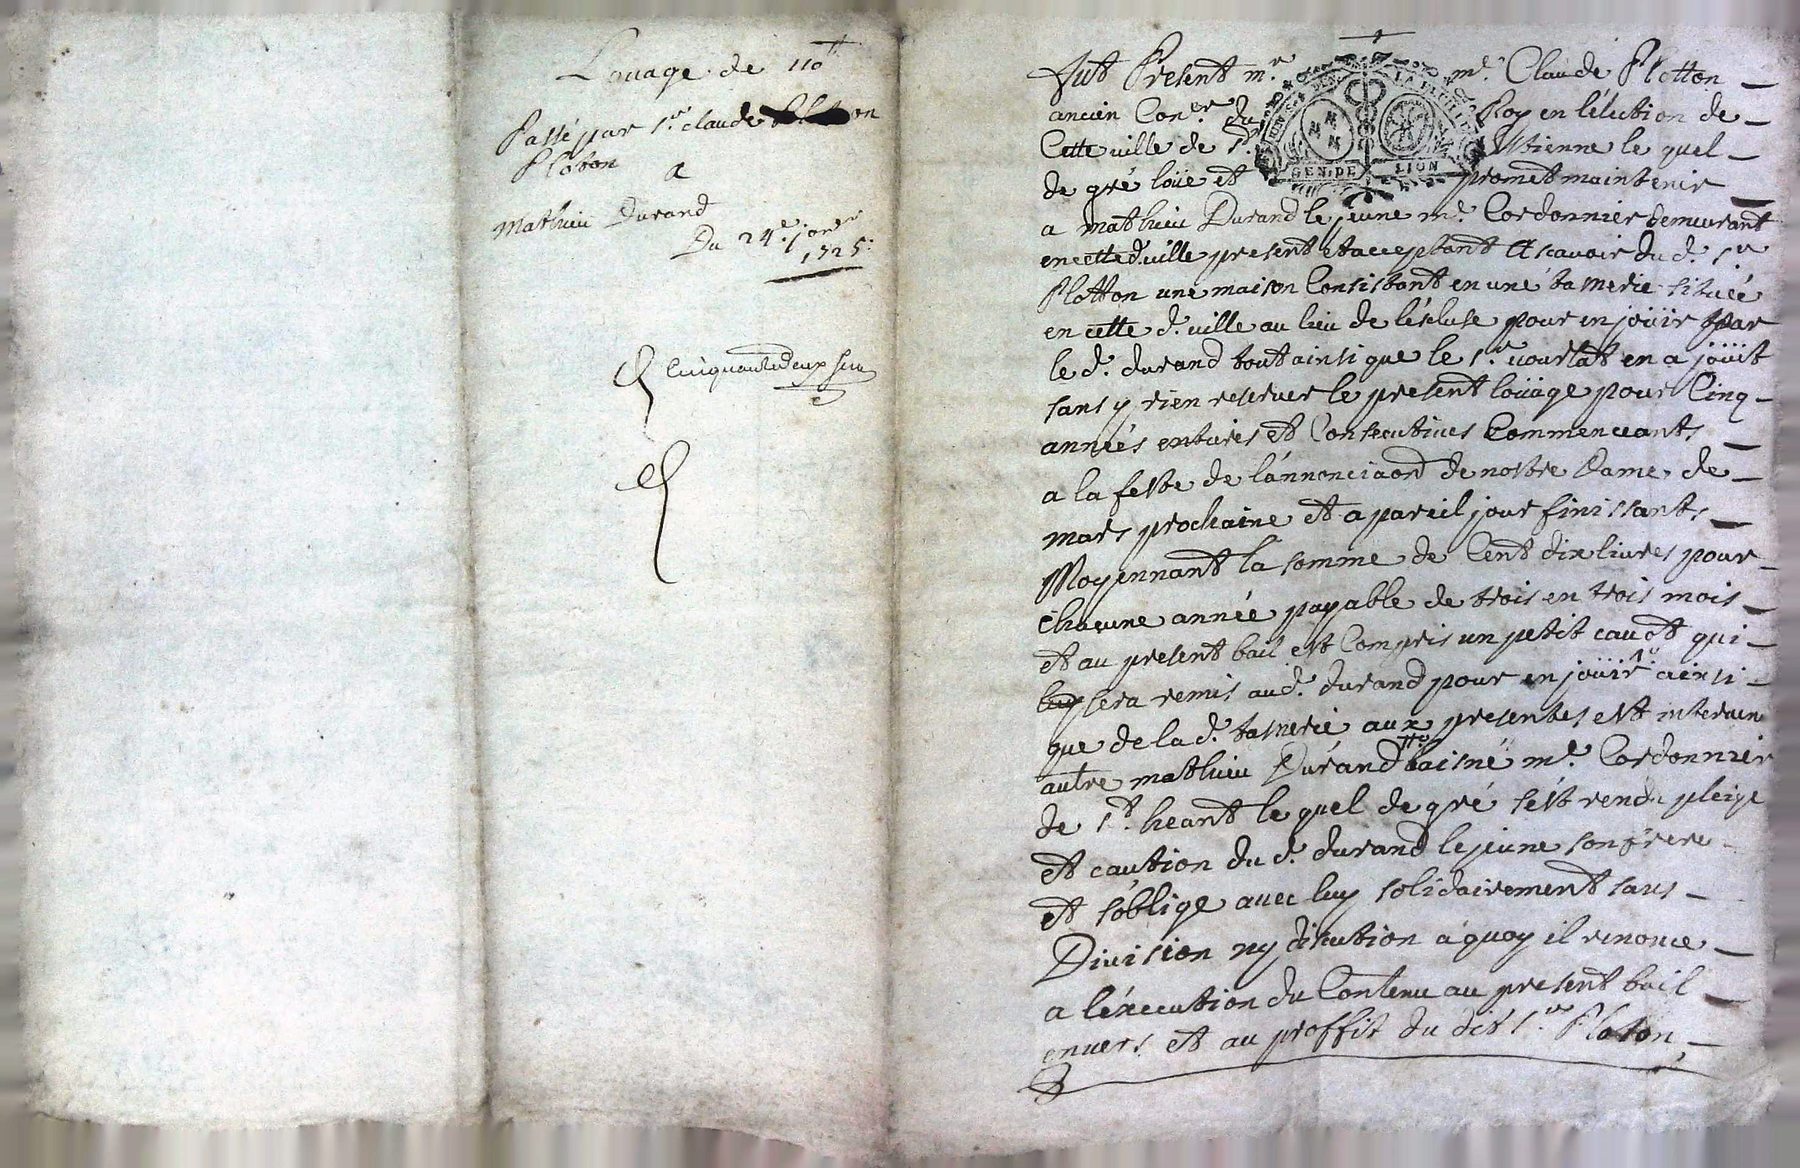 Louage de 110ᵗᵗ
Passé par sʳ claude
Ploton
a
Mathieu Durand
Du 24ᵉ janᵉʳ
1725
Cinquante deux
Fut Present mʳ mᵉ Claude Plotton
ancien Conᵉʳ du Roy en l'élection de
Cette ville de Sᵗ Estienne le quel
de gré loüe et promet maintenir
a mathieu Durand le jeune mᵈ Cordonnier demeurant
en cette d. ville present et acceptant Ascavoir du d. sʳ
Plotton une maison Consistant en une tannerie située
en cette d. ville au lieu de l'escluse pour en joüir par
le d. durand tout ainsi que le sʳ en a joüit
sans y rien reserver le present loüage pour Cinq
années entieres et Consecutives Commenceants
a la feste de l'annonciaon de nostre Dame de
mars prochaine et a pareil jour finissants
Moyennant la somme de Cent dix livres pour
chacune année payable de trois en trois mois
et au present bail est Compris un petit cauot qui
sera remis au d. durand pour en joüir ainsi
que de la d. tannerie aux presentes est intervenu
autre mathieu Durand laisné mᵈ Cordonnier
de sᵗ heant le quel de gré s'est rendu pleige
et caution du d. durand le jeune son frere
et s'oblige avec luy solidairement sans
Division ny discution a quoy il renonce
a l'execution du Contenu au present bail
envers et au proffit du dit sʳ Ploton
GEN. DE LION